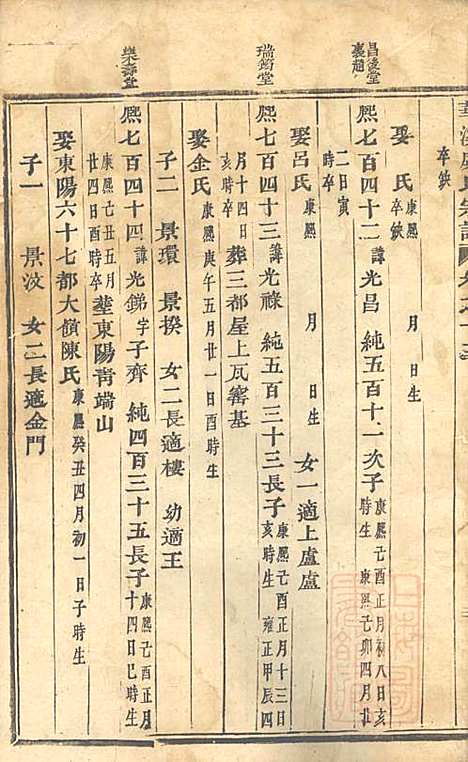 卒缺
娶　氏 康熙　月　日生 卒缺
昌後堂裏趙
熙七百四十二 諱光昌 純五百十一次子 康熙己酉正月初八日亥時生 康熙己卯四月廿二日寅時卒
娶呂氏 康熙　月　日生 女一適上盧盧
瑞筠堂
熙七百四十三 諱光祿 純五百三十三長子 康熙己酉正月十三日亥時生 雍正甲辰四月十四日亥時卒 葬三都屋上瓦窰基
娶金氏 康熙庚午五月廿一日亥時生
子二 景環 景揆 女二長適樓 幼適王
樂壽堂
熙七百四十四 諱光錦 字子齊 純四百三十五長子 康熙己酉正月十四日巳時生 康熙辛丑五月廿四日酉時卒 塟東陽青端山
娶東陽六十七都大嶺陳氏 康熙癸丑四月初一日子時生
子一 景汶 女二長適金門